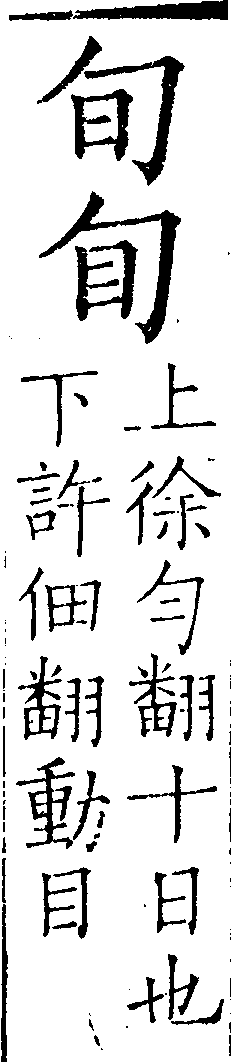 旬旬
上徐勻翻十日也
下許佃翻動目